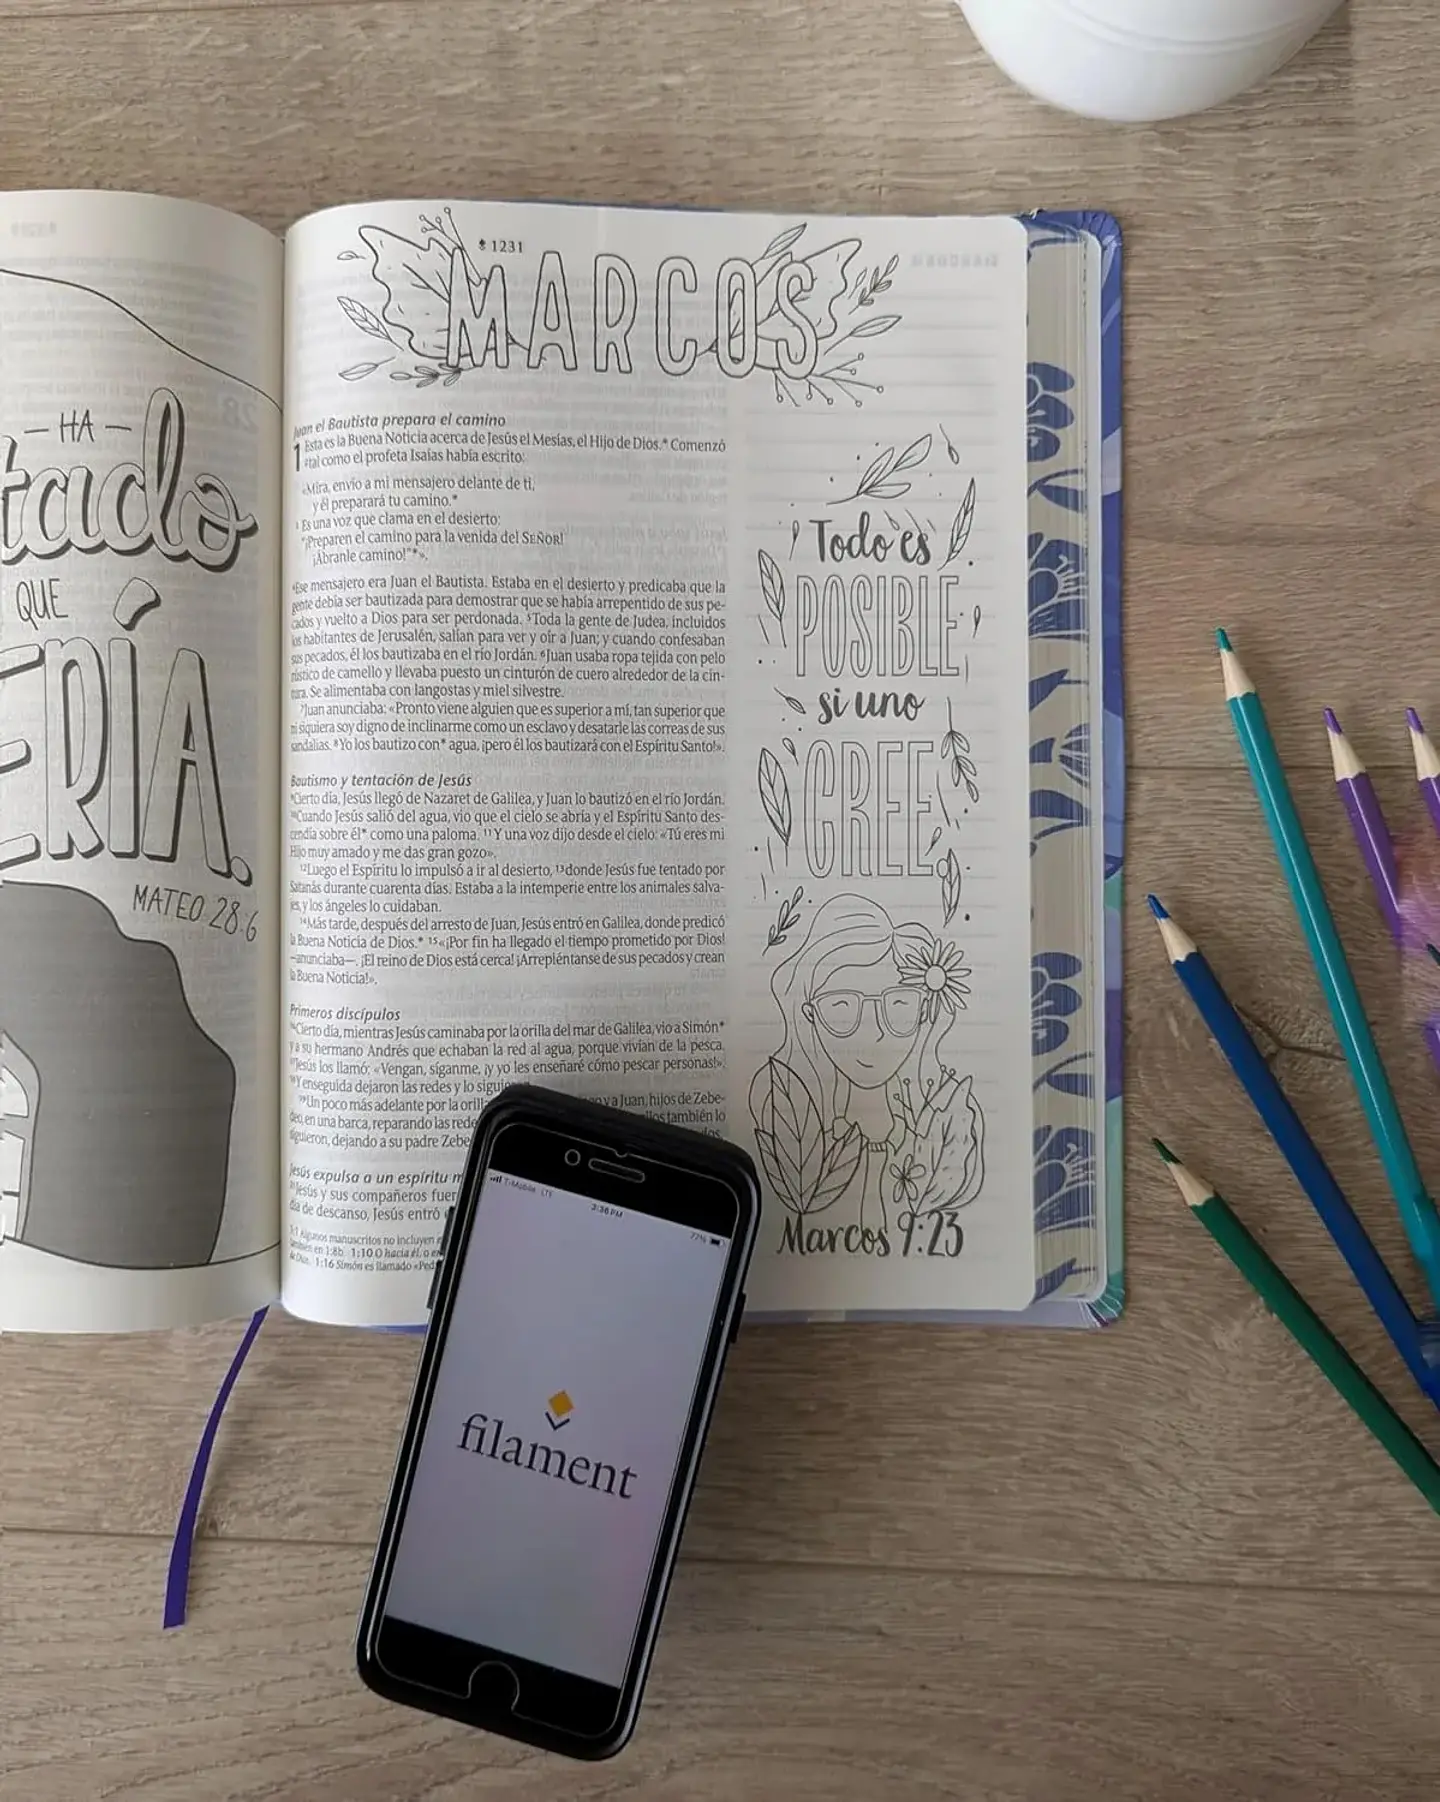 — HA —
tado
QUE
ERÍA.
MATEO 28:6
1231
MARCOS
Juan el Bautista prepara el camino
1 Esta es la Buena Noticia acerca de Jesús el Mesías, el Hijo de Dios.* Comenzó
tal como el profeta Isaías había escrito:
«Mira, envío a mi mensajero delante de ti,
y él preparará tu camino.*
Es una voz que clama en el desierto:
"¡Preparen el camino para la venida del SEÑOR!
¡Ábranle camino!"*».
Ese mensajero era Juan el Bautista. Estaba en el desierto y predicaba que la
gente debía ser bautizada para demostrar que se había arrepentido de sus pe-
cados y vuelto a Dios para ser perdonada. ⁵Toda la gente de Judea, incluidos
los habitantes de Jerusalén, salían para ver y oír a Juan; y cuando confesaban
sus pecados, él los bautizaba en el río Jordán. ⁶Juan usaba ropa tejida con pelo
rústico de camello y llevaba puesto un cinturón de cuero alrededor de la cin-
tura. Se alimentaba con langostas y miel silvestre.
⁷Juan anunciaba: «Pronto viene alguien que es superior a mí, tan superior que
ni siquiera soy digno de inclinarme como un esclavo y desatarle las correas de sus
sandalias. ⁸Yo los bautizo con* agua, ¡pero él los bautizará con el Espíritu Santo!».
Bautismo y tentación de Jesús
⁹Cierto día, Jesús llegó de Nazaret de Galilea, y Juan lo bautizó en el río Jordán.
¹⁰Cuando Jesús salió del agua, vio que el cielo se abría y el Espíritu Santo des-
cendía sobre él* como una paloma. ¹¹Y una voz dijo desde el cielo: «Tú eres mi
Hijo muy amado y me das gran gozo».
¹²Luego el Espíritu lo impulsó a ir al desierto, ¹³donde Jesús fue tentado por
Satanás durante cuarenta días. Estaba a la intemperie entre los animales salva-
jes, y los ángeles lo cuidaban.
¹⁴Más tarde, después del arresto de Juan, Jesús entró en Galilea, donde predicó
la Buena Noticia de Dios.* ¹⁵«¡Por fin ha llegado el tiempo prometido por Dios!
—anunciaba—. ¡El reino de Dios está cerca! ¡Arrepiéntanse de sus pecados y crean
la Buena Noticia!».
Primeros discípulos
¹⁶Cierto día, mientras Jesús caminaba por la orilla del mar de Galilea, vio a Simón*
y a su hermano Andrés que echaban la red al agua, porque vivían de la pesca.
¹⁷Jesús los llamó: «Vengan, síganme, ¡y yo les enseñaré cómo pescar personas!».
¹⁸Y enseguida dejaron las redes y lo siguie
¹⁹Un poco más adelante por la orilla y a Juan, hijos de Zebe-
deo, en una barca, reparando las rede también lo
siguieron, dejando a su padre Zebe
Jesús expulsa a un espíritu
²¹Jesús y sus compañeros fuer
día de descanso, Jesús entró
1:1 Algunos manuscritos no incluyen
también en 1:8b. 1:10 O hacia él, o en
de Dios. 1:16 Simón es llamado «Ped
Todo es
POSIBLE
si uno
CREE.
Marcos 9:23
T-Mobile LTE 3:36 PM 77%
filament